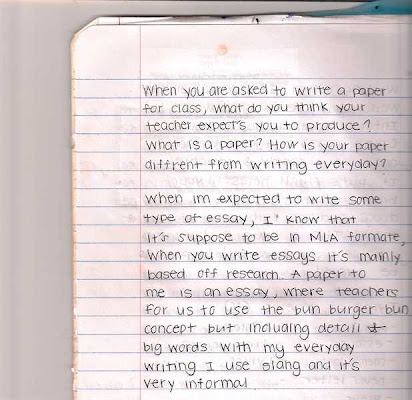 When you are asked to write a paper
for class, what do you think your
teacher expect's you to produce?
What is a paper? How is your paper
diffrent from writing everyday?
When im expected to write some
type of essay, I know that
it's suppose to be in MLA formate,
When you write essays it's mainly
based off research. A paper to
me is an essay, where teachers
for us to use the bun burger bun
concept but including detail &
big words with my everyday
writing I use slang and it's
very informal.